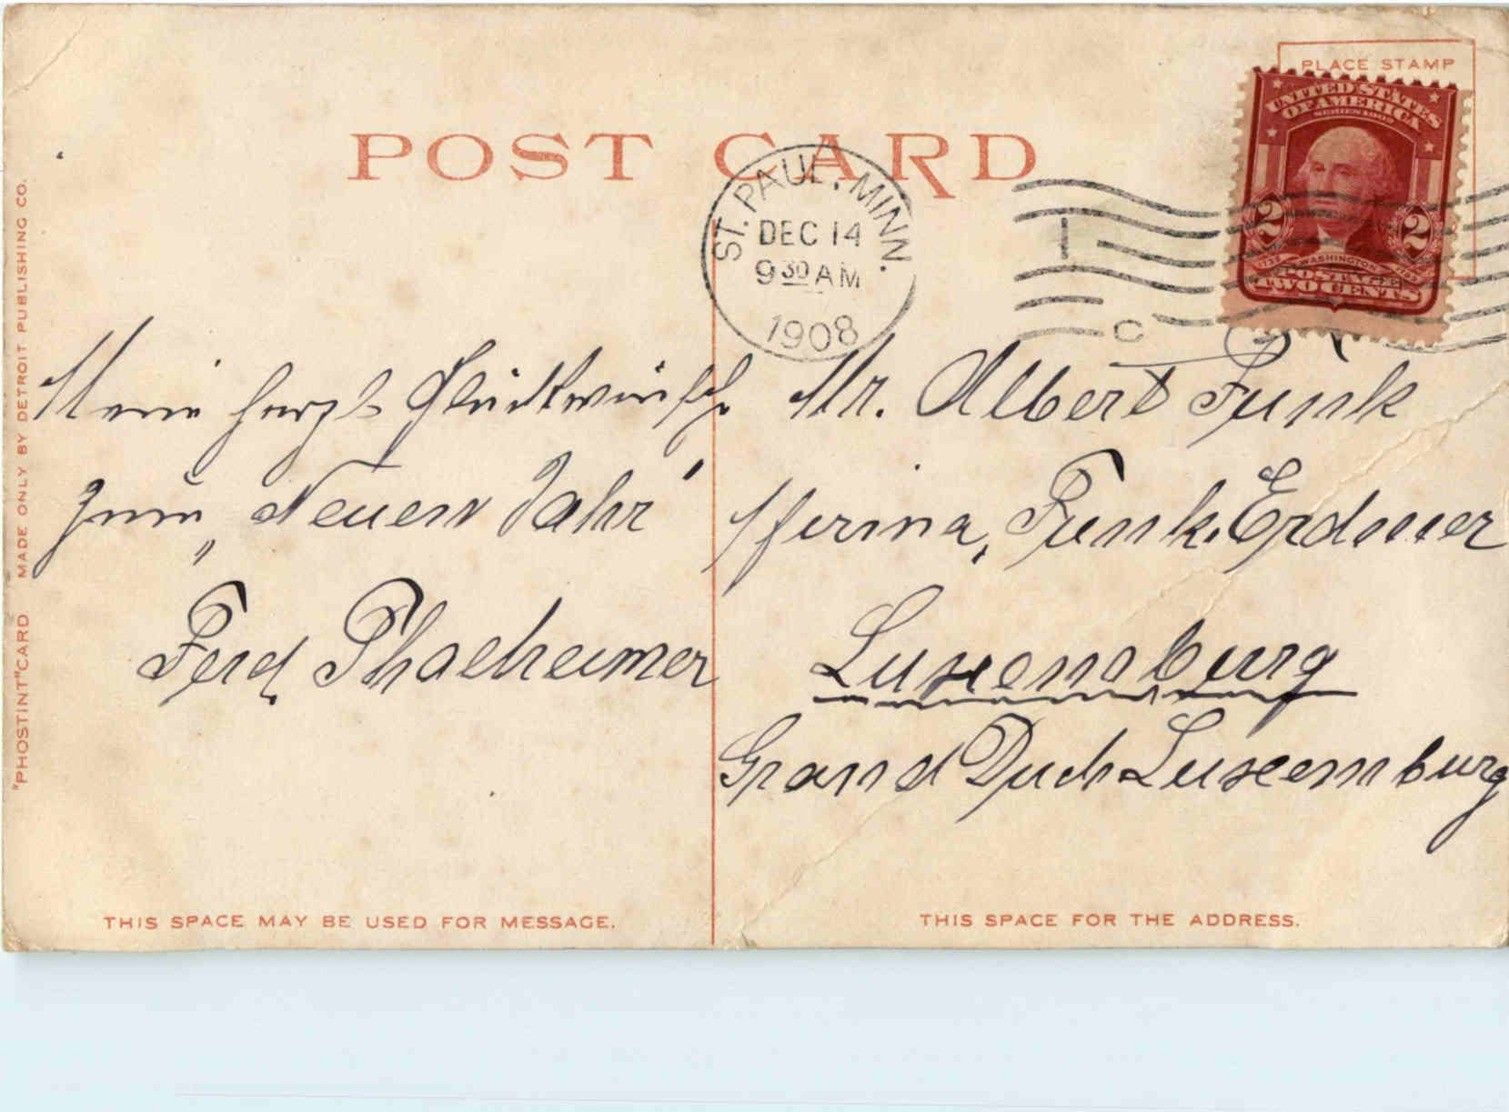 POST CARD
PLACE STAMP
UNITED STATES
OF AMERICA
SERIES 1902
2 2
WASHINGTON
POSTAGE
TWO CENTS
ST. PAUL, MINN.
DEC 14
9 30 AM
1908
1
C
Mein herzl Glückwünsch
zum „Neuen Jahr"
Ferd
Mr. Albert Funk
Funk. Erdmer
Luxemburg
Grand Duch Luxemburg
THIS SPACE MAY BE USED FOR MESSAGE.
THIS SPACE FOR THE ADDRESS.
"PHOSTINT" CARD MADE ONLY BY DETROIT PUBLISHING CO.